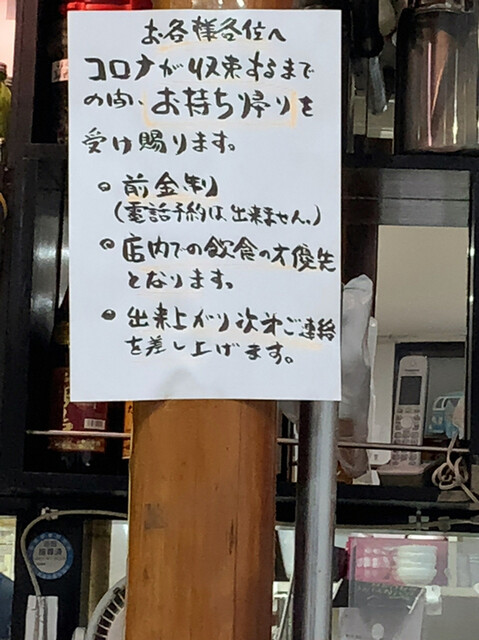 お客様各位へ
コロナが収束するまで
の間、お持ち帰りを
受け賜ります。
。前金制
(電話予約は、出来ません。)
。店内での飲食の方優先
となります。
。出来上がり次第ご連絡
を差し上げます。